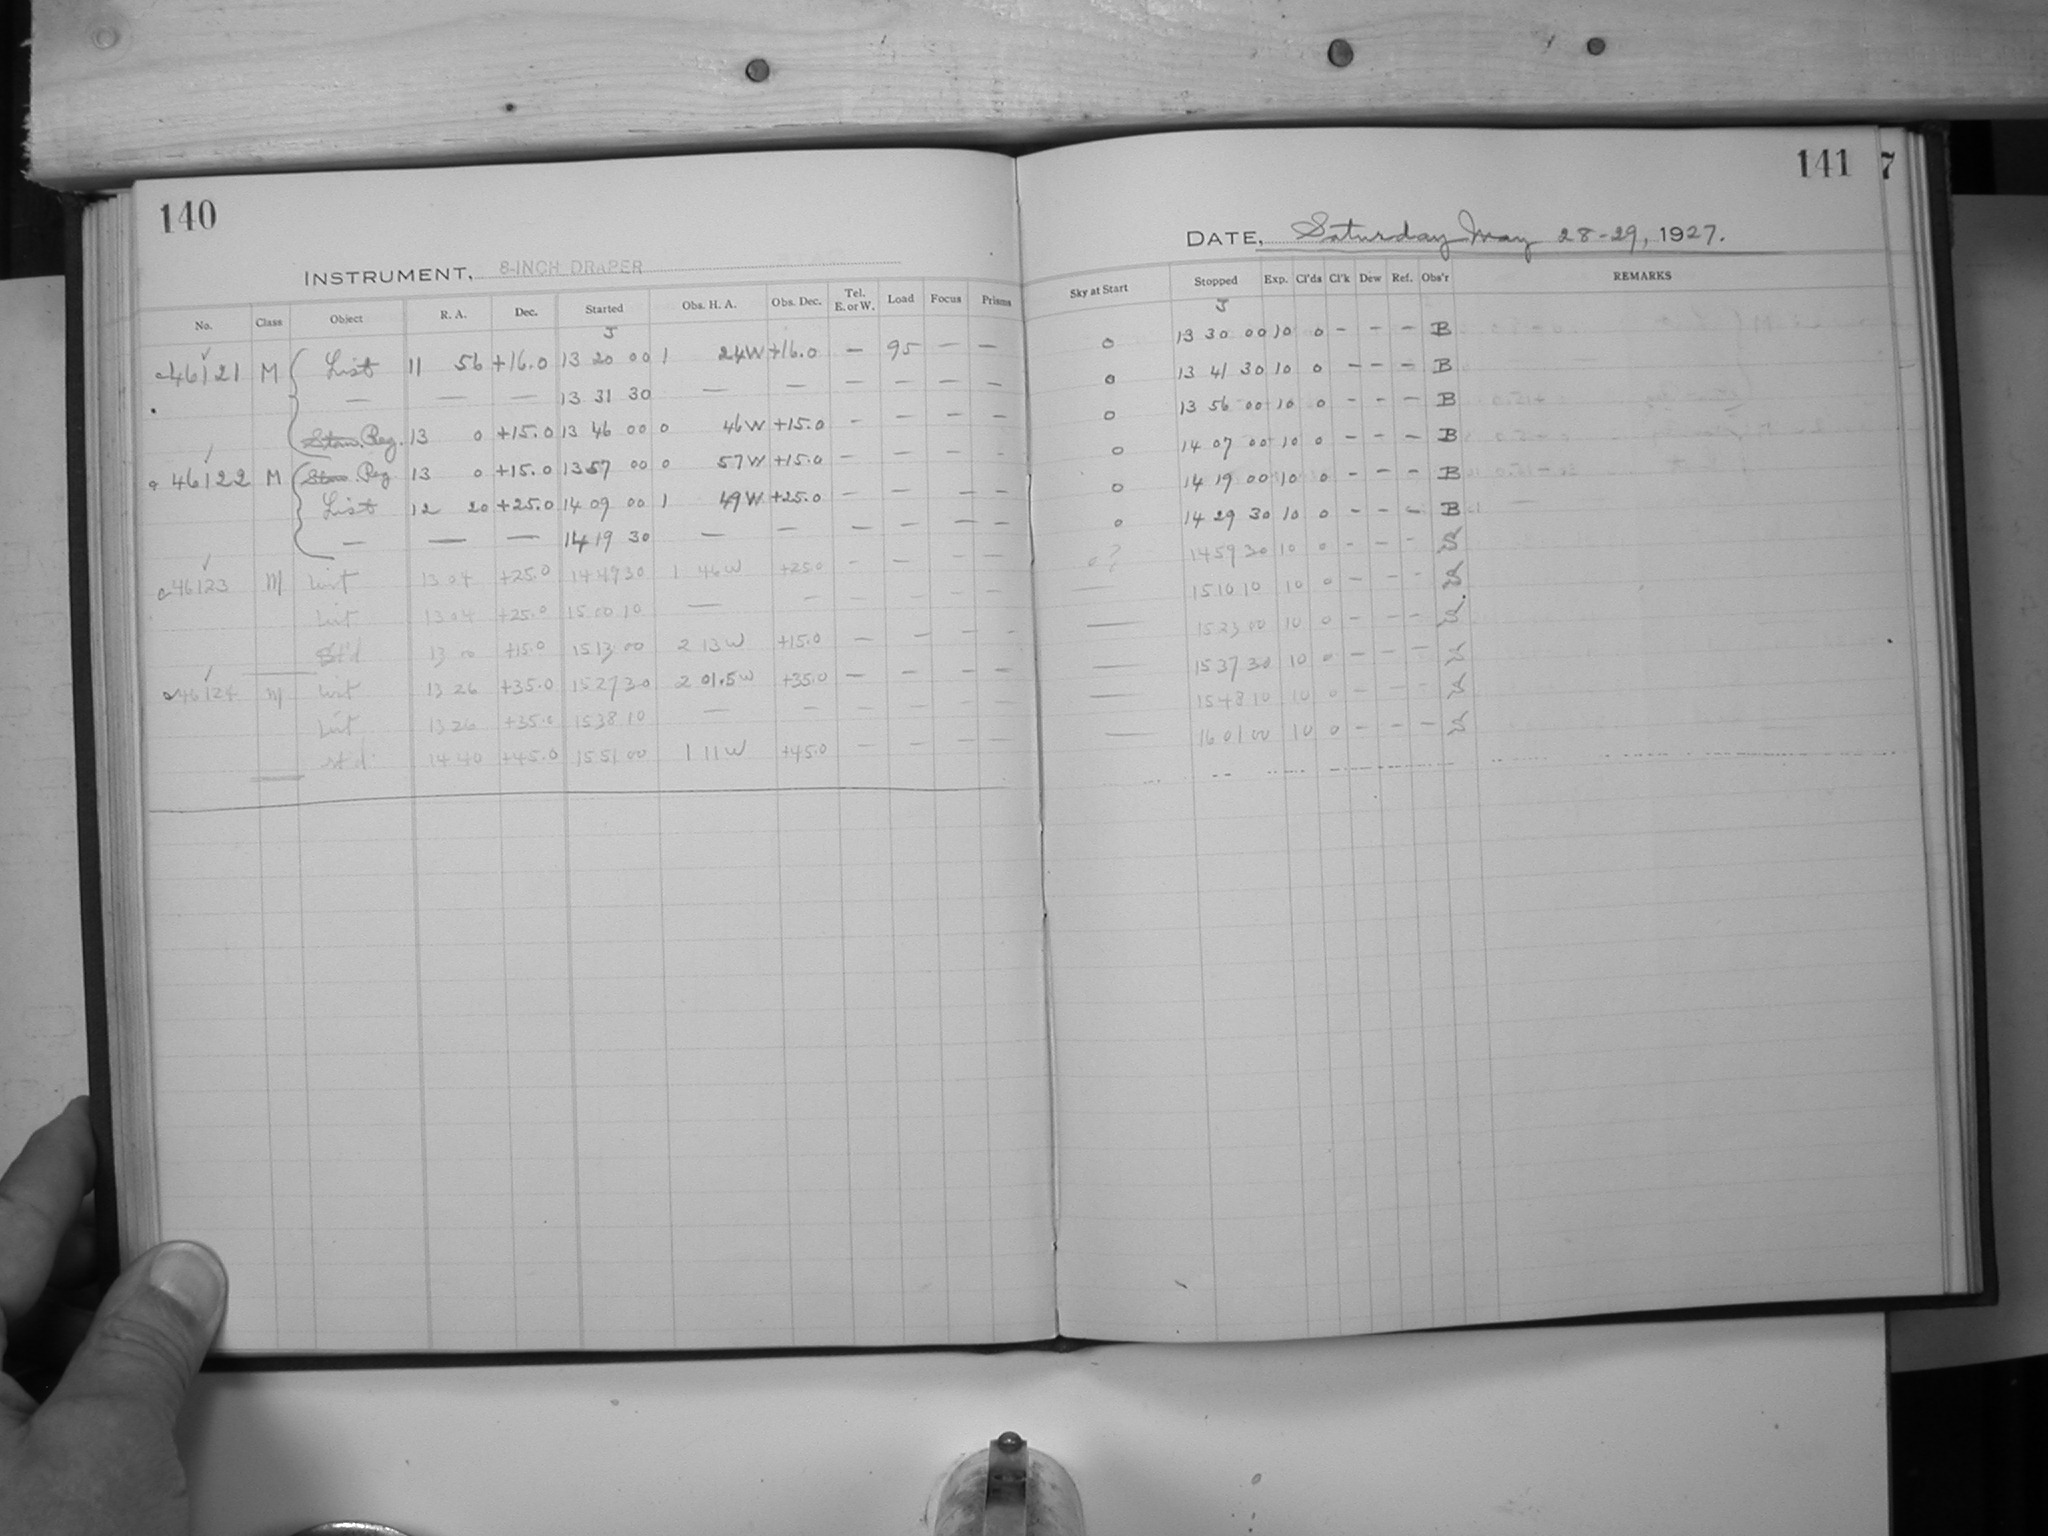 140
INSTRUMENT, 8-INCH DRAPER
No. Class Object R. A. Dec. Started Obs. H. A. Obs. Dec. Tel. E. or W. Load Focus Prisms
J
46121 M List 11 56 +16.0 13 20 00 1 24W +16.0 — 95 — —
— — — 13 31 30 — — — — — —
Reg. 13 0 +15.0 13 46 00 0 46W +15.0 — — — —
46122 M Reg 13 0 +15.0 13 57 00 0 57W +15.0 — — — —
List 12 20 +25.0 14 09 00 1 49W +25.0 — — — —
— — — 14 19 30 — — — — — —
46123 M List 13 04 +25.0 14 49 30 1 46W +25.0 — — — —
List 13 04 +25.0 15 00 10 — — — — — —
St'd 13 00 +15.0 15 13 00 2 13W +15.0 — — — —
46124 M List 13 26 +35.0 15 27 30 2 01.5W +35.0 — — — —
List 13 26 +35.0 15 38 10 — — — — — —
st'd 14 40 +45.0 15 51 00 1 11W +45.0 — — — —
141
7
DATE, Saturday May 28-29, 1927.
Sky at Start Stopped Exp. Cl'ds Cl'k Dew Ref. Obs'r REMARKS
J
0 13 30 00 10 0 - - - B
0 13 41 30 10 0 - - - B
0 13 56 00 10 0 - - - B
0 14 07 00 10 0 - - - B
0 14 19 00 10 0 - - - B
0 14 29 30 10 0 - - - B
0? 14 59 30 10 0 - - - S
— 15 10 10 10 0 - - - S
— 15 23 00 10 0 - - - S
— 15 37 30 10 0 - - - S
— 15 48 10 10 0 - - - S
— 16 01 00 10 0 - - - S